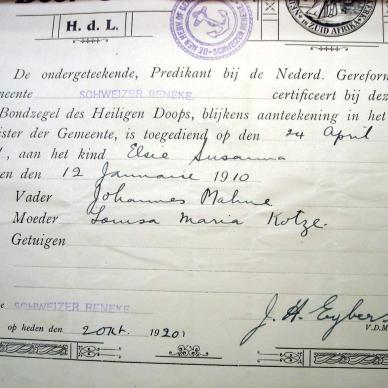 H. d. L.
ZUID AFRIKA
De ondergeteekende, Predikant bij de Nederd. Gereform
meente SCHWEIZER RENEKE. certificeert bij dez
Bondzegel des Heiligen Doops, blijkens aanteekening in het
ister der Gemeente, is toegediend op den 24 April
, aan het kind Elsie Susanna
en den 12 Januarie 1910
Vader Johannes Malme
Moeder Louisa Maria Kotze.
Getuigen
e SCHWEIZER RENEKE
J. H. Eybers
op heden den 2 Okt. 1920
V.D.M